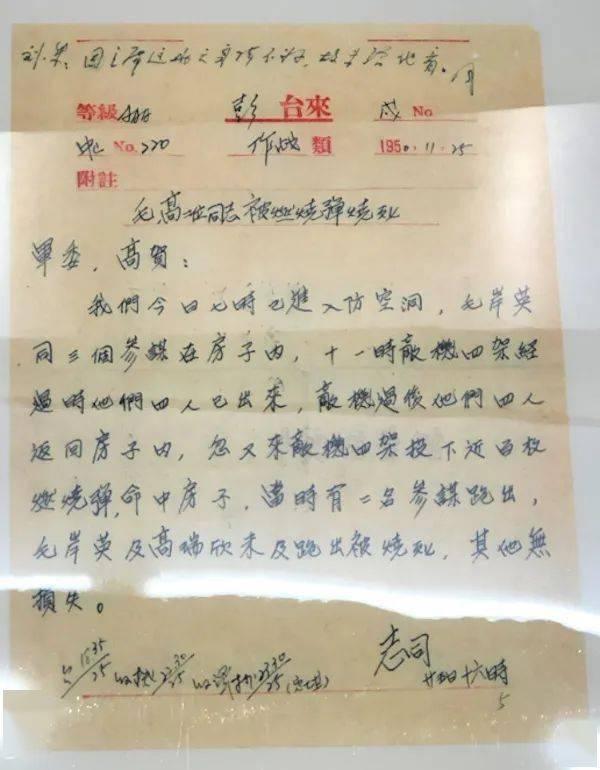 刘、朱：因主席这两天身体不好，故未给他看。周
等級AAAA 彭 台來 戌 No.
电 No. 220 作战 類 1950.11.25
附註
毛、高二同志被燃燒彈燒死
軍委，高賀：
我們今日七時已進入防空洞，毛岸英
同三個參謀在房子內，十一時敵機四架經
過時他們四人已出來，敵機過後他們四人
返回房子內，忽又來敵機四架投下近百枚
燃燒彈，命中房子，當時有二名參謀跑出，
毛岸英及高瑞欣未及跑出被燒死，其他無
損失。
志司
廿五日十六時